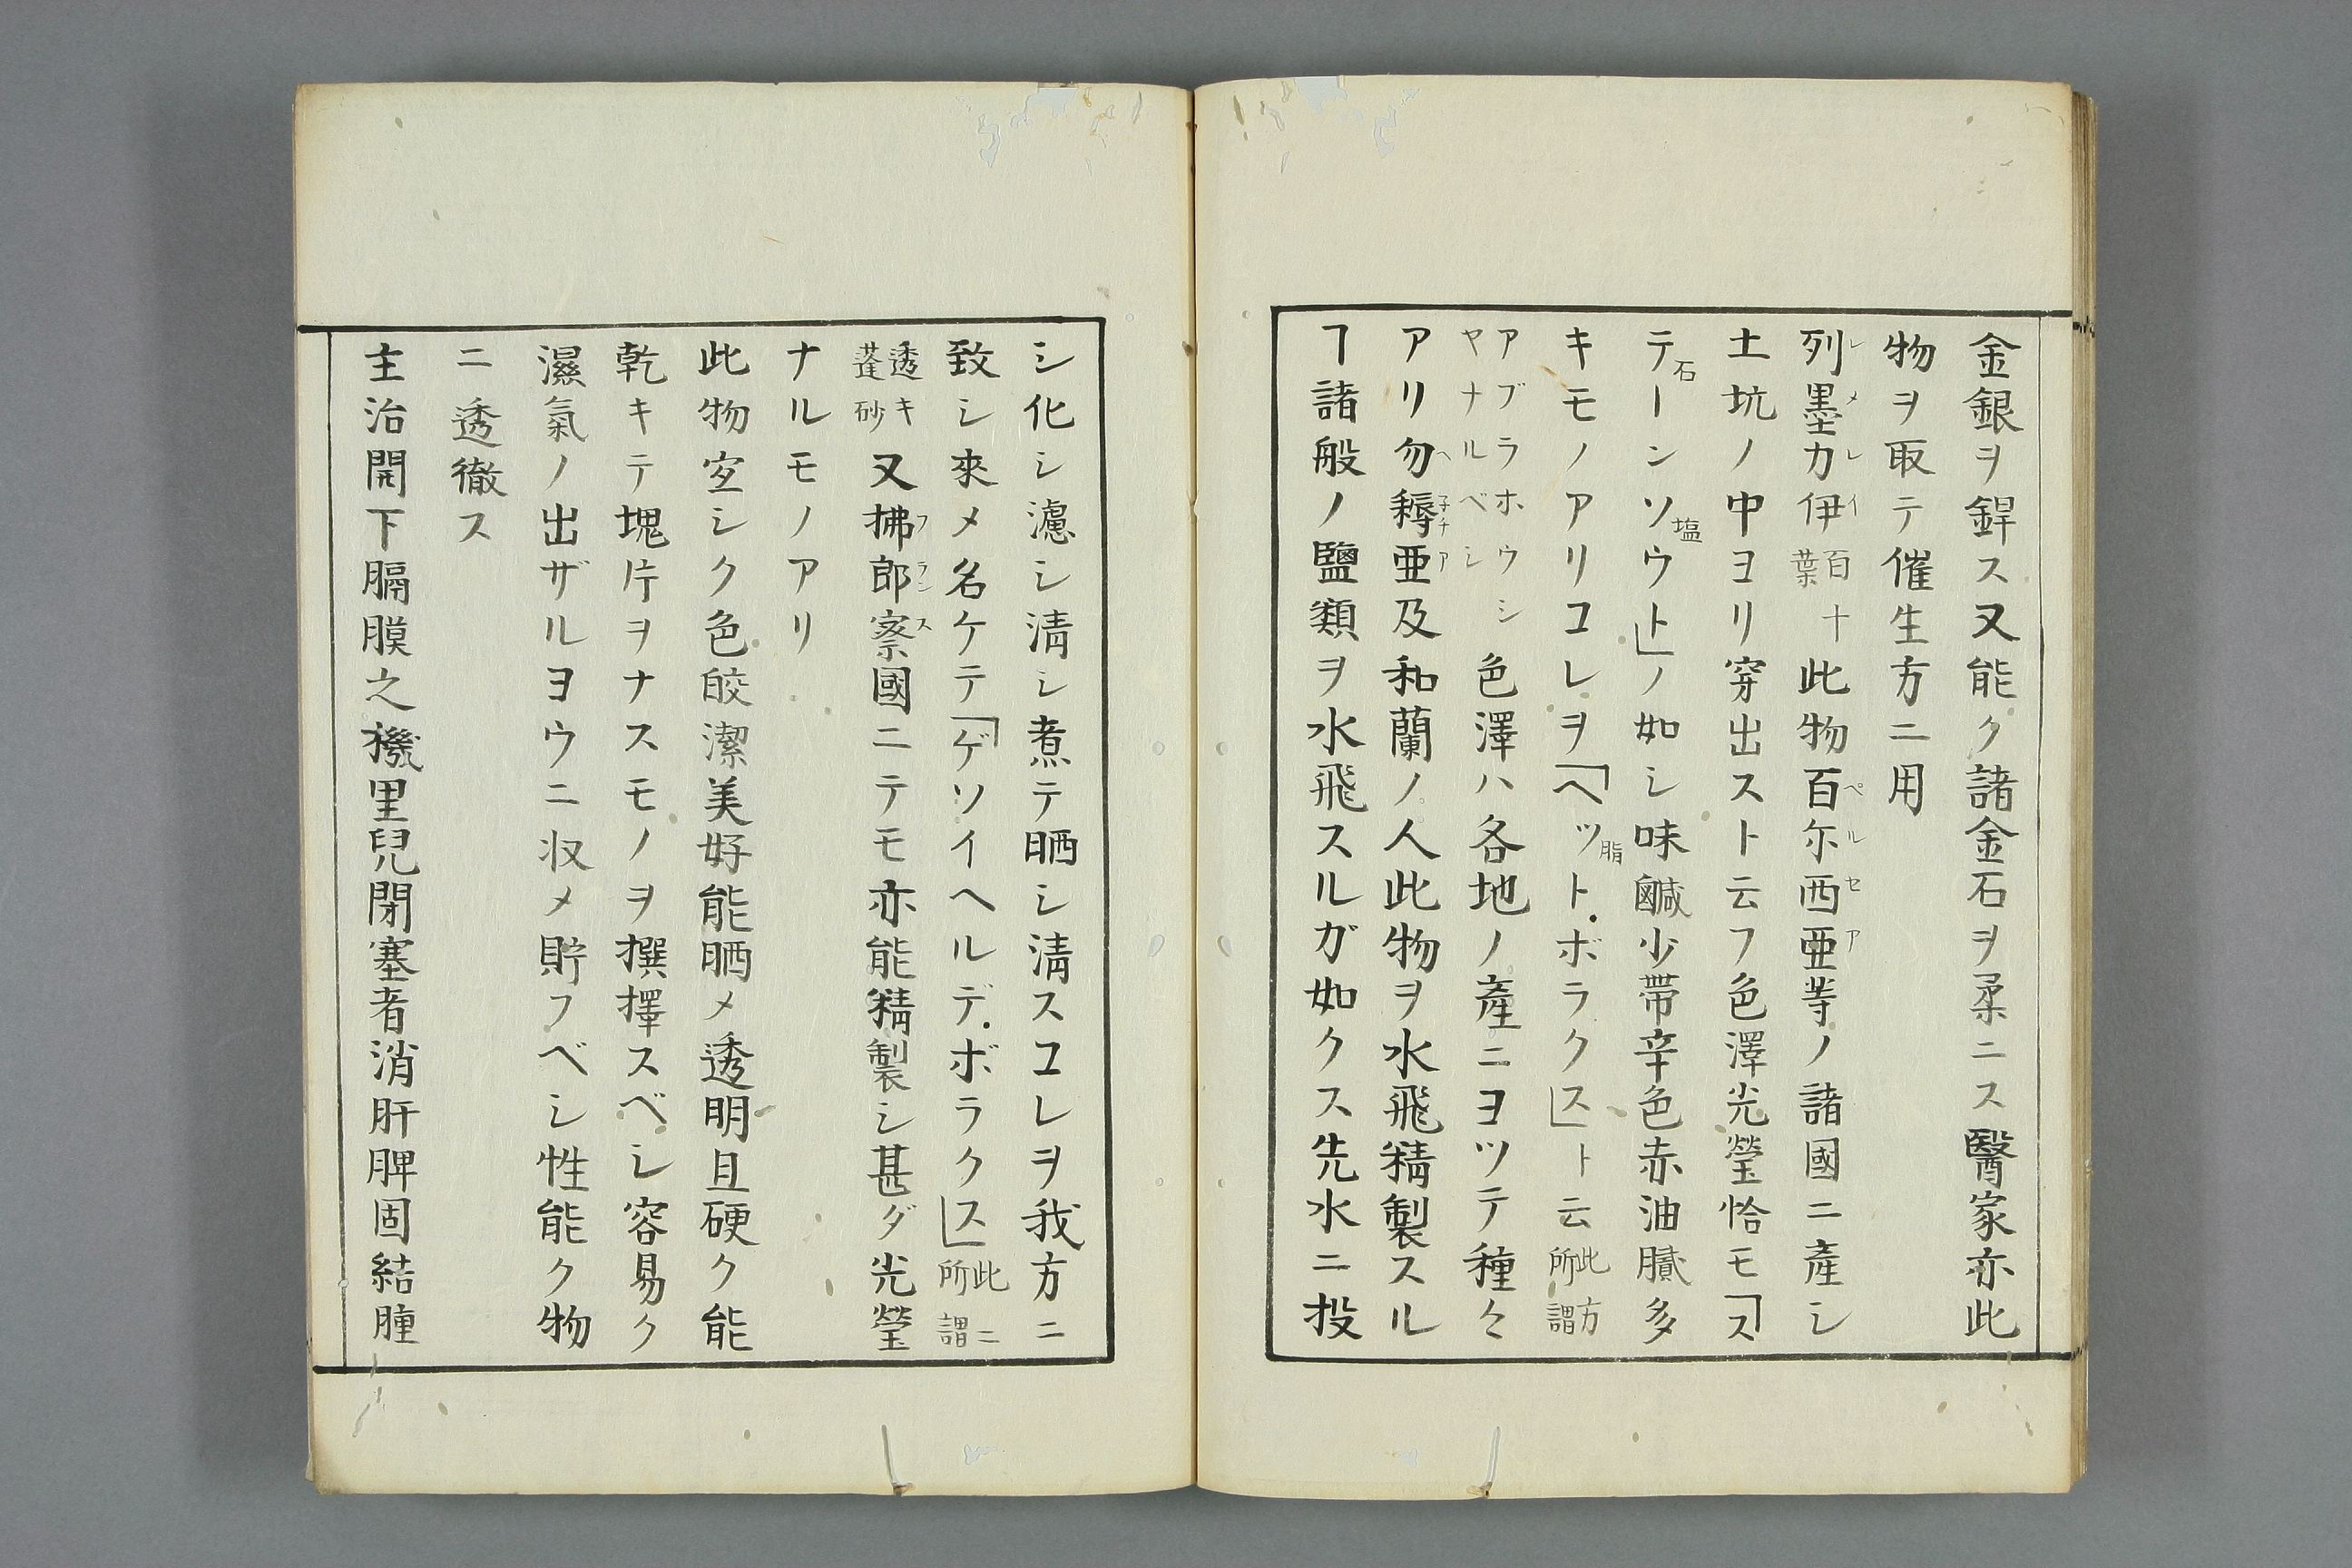 金銀ヲ銲ス又能ク諸金石ヲ柔ニス醫家亦此
物ヲ取テ催生方ニ用
列墨力伊百十葉此物百尓西亜等ノ諸國ニ產シ
レメレイ
ペルセア
土坑ノ中ヨリ穿出スト云フ色澤光瑩恰モ「ス
テーンソウト」ノ如シ味鹹少帶辛色赤油膩多
石塩
キモノアリコレヲ「ヘツト.ボラクス」ト云此方所謂
脂
アブラホウシヤナルベシ色澤ハ各地ノ產ニヨツテ種々
アリ勿耨亜及和蘭ノ人此物ヲ水飛精製スル
ヘ子チア
ヿ諸般ノ鹽類ヲ水飛スルガ如クス先水ニ投
シ化シ濾シ淸シ煮テ晒シ淸スコレヲ我方ニ
致シ來メ名ケテ「ゲソイヘルデ.ボラクス」此ニ所謂
透キ蓬砂又拂郎察國ニテモ亦能精製シ甚ダ光瑩
フランス
ナルモノアリ
此物空シク色皎潔美好能晒メ透明且硬ク能
乾キテ塊片ヲナスモノヲ撰擇スベシ容易ク
濕氣ノ出ザルヨウニ収メ貯フベシ性能ク物
ニ透徹ス
主治開下膈膜之機里兒閉塞者消肝脾固結腫